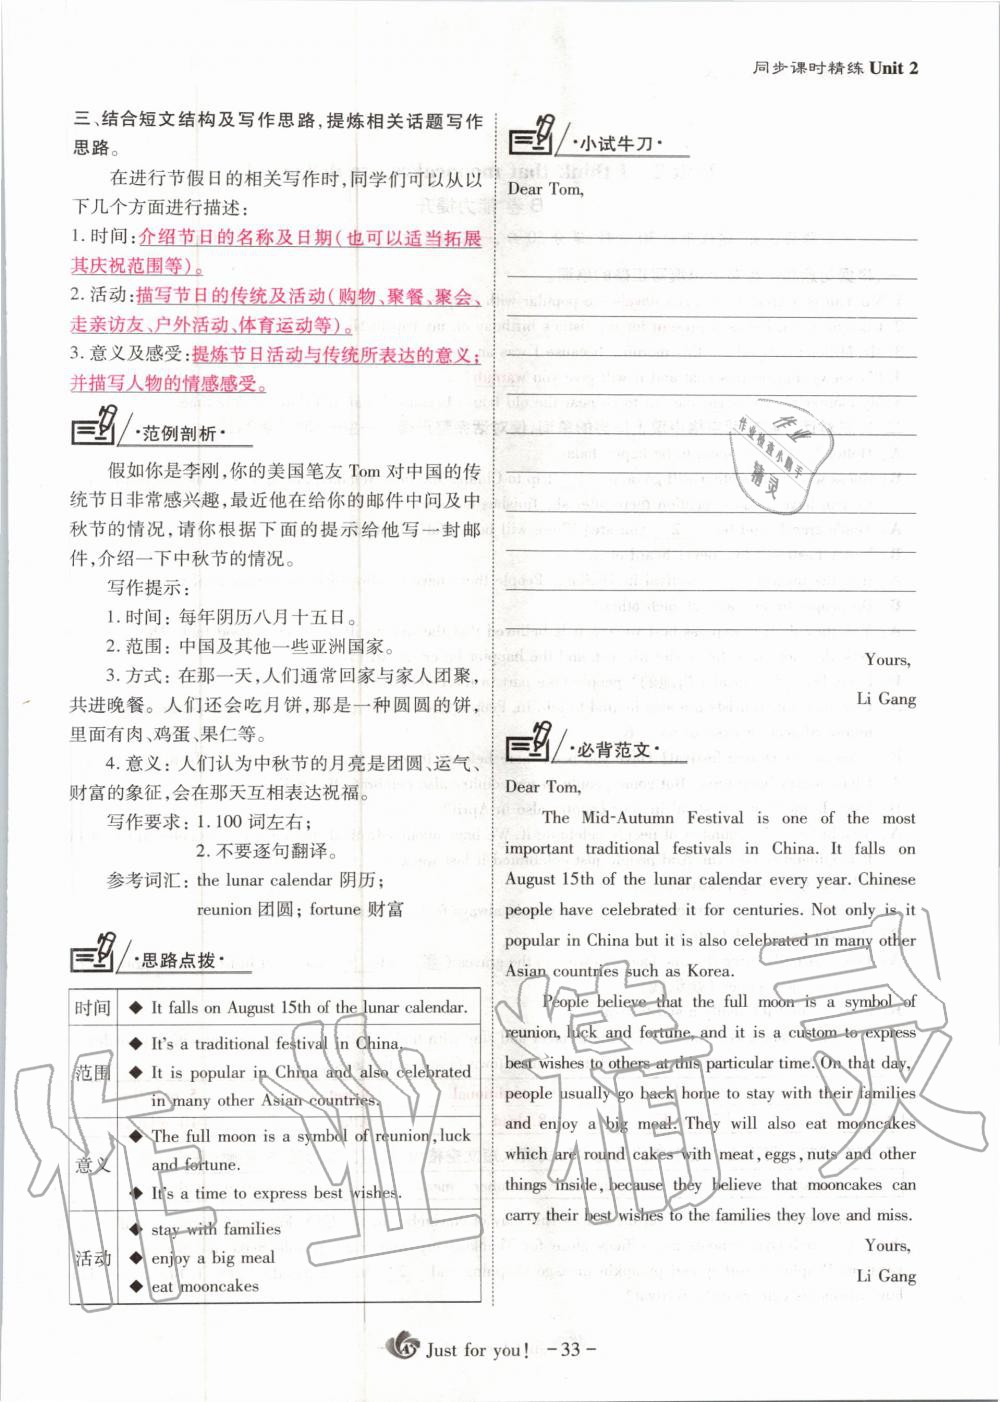 同步课时精练 Unit 2
三、结合短文结构及写作思路,提炼相关话题写作
思路。
在进行节假日的相关写作时,同学们可以从以
下几个方面进行描述:
1. 时间:介绍节日的名称及日期(也可以适当拓展
其庆祝范围等)。
2. 活动:描写节日的传统及活动(购物、聚餐、聚会、
走亲访友、户外活动、体育运动等)。
3. 意义及感受:提炼节日活动与传统所表达的意义;
并描写人物的情感感受。
·范例剖析·
假如你是李刚,你的美国笔友 Tom 对中国的传
统节日非常感兴趣,最近他在给你的邮件中问及中
秋节的情况,请你根据下面的提示给他写一封邮
件,介绍一下中秋节的情况。
写作提示:
1. 时间: 每年阴历八月十五日。
2. 范围: 中国及其他一些亚洲国家。
3. 方式: 在那一天,人们通常回家与家人团聚,
共进晚餐。人们还会吃月饼,那是一种圆圆的饼,
里面有肉、鸡蛋、果仁等。
4. 意义: 人们认为中秋节的月亮是团圆、运气、
财富的象征,会在那天互相表达祝福。
写作要求: 1. 100 词左右;
2. 不要逐句翻译。
参考词汇: the lunar calendar 阴历;
reunion 团圆; fortune 财富
·思路点拨·
时间
◆ It falls on August 15th of the lunar calendar.
范围
◆ It's a traditional festival in China.
◆ It is popular in China and also celebrated
in many other Asian countries.
意义
◆ The full moon is a symbol of reunion, luck
and fortune.
◆ It's a time to express best wishes.
活动
◆ stay with families
◆ enjoy a big meal
◆ eat mooncakes
·小试牛刀·
Dear Tom,
作业
作业检查小助手
精灵
Yours,
Li Gang
·必背范文·
Dear Tom,
The Mid-Autumn Festival is one of the most
important traditional festivals in China. It falls on
August 15th of the lunar calendar every year. Chinese
people have celebrated it for centuries. Not only is it
popular in China but it is also celebrated in many other
Asian countries such as Korea.
People believe that the full moon is a symbol of
reunion, luck and fortune, and it is a custom to express
best wishes to others at this particular time. On that day,
people usually go back home to stay with their families
and enjoy a big meal. They will also eat mooncakes
which are round cakes with meat, eggs, nuts and other
things inside, because they believe that mooncakes can
carry their best wishes to the families they love and miss.
Yours,
Li Gang
作业精灵
Just for you! -33-